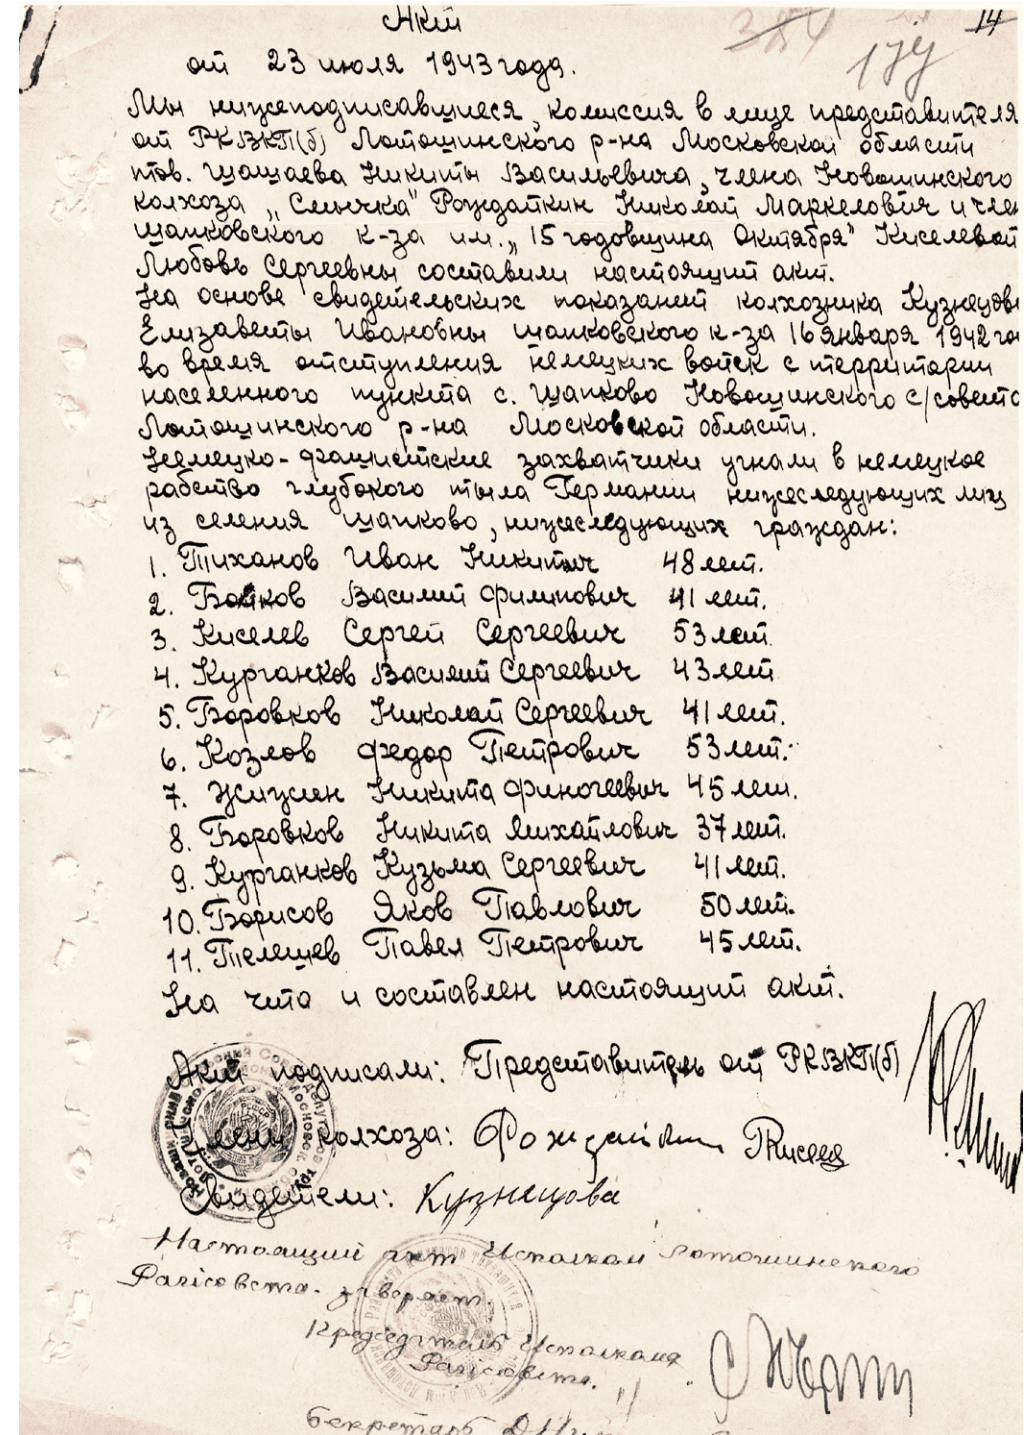 14
384
174
Акт
от 23 июля 1943 года.
Мы нижеподписавшиеся, комиссия в лице представителя
от РКВКП(б) Лотошинского р-на Московской области
тов. Шашаева Никиты Васильевича, члена Новошинского
колхоза „Смычка" Рождайкин Николай Маркелович и член
Шапковского к-за им. „15 годовщина Октября" Киселевой
Любовь Сергеевны составили настоящий акт.
На основе свидетельских показаний колхозника Кузнецов
Елизаветы Ивановны Шапковского к-за 16 января 1942 го
во время отступления немецких войск с территории
населенного пункта с. Шапково Новошинского с/совета
Лотошинского р-на Московской области.
Немецко-фашистские захватчики угнали в немецкое
рабство глубокого тыла Германии нижеследующих лиц
из селения Шапково, нижеследующих граждан:
1. Тиханов Иван Никитич 48 лет.
2. Бойков Василий Филипович 41 лет.
3. Киселев Сергей Сергеевич 53 лет
4. Курганков Василий Сергеевич 43 лет
5. Боровков Николай Сергеевич 41 лет.
6. Козлов Федор Петрович 53 лет.
7. Жижин Никита Финогеевич 45 лет.
8. Боровков Никита Михайлович 37 лет.
9. Курганков Кузьма Сергеевич 41 лет.
10. Борисов Яков Павлович 50 лет.
11. Телешев Павел Петрович 45 лет.
На что и составлен настоящий акт.
Акт подписали: Представитель от РКВКП(б)
Члены колхоза:
Свидетели: Кузнецова
Настоящий акт Исполком Лотошинского
Райсовета заверяет.
Председатель Исполкома
Райсовета.
Секретарь